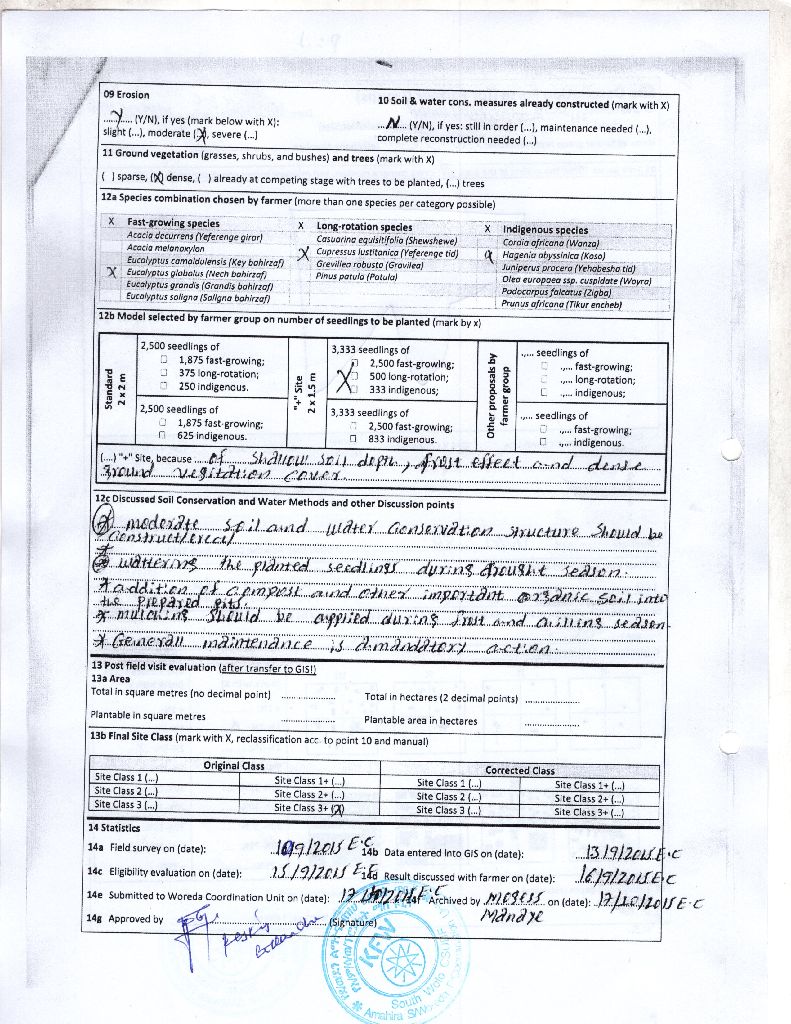 09 Erosion
10 Soil & water cons. measures already constructed (mark with X)
...Y.... (Y/N), if yes (mark below with X):
...N... (Y/N), if yes: still in order (...), maintenance needed (...),
slight (...), moderate (X), severe (...)
complete reconstruction needed (...)
11 Ground vegetation (grasses, shrubs, and bushes) and trees (mark with X)
( ) sparse, (X) dense, ( ) already at competing stage with trees to be planted, (...) trees
12a Species combination chosen by farmer (more than one species per category possible)
X Fast-growing species X Long-rotation species X Indigenous species
Acacia decurrens (Yeferenge girar) Casuarina equisitifolia (Shewshewe) Cordia africana (Wanza)
Acacia melanoxylon X Cupressus lusitanica (Yeferenge tid) Hagenia abyssinica (Koso)
Eucalyptus camaldulensis (Key bahirzaf) Grevillea robusta (Gravilea) Juniperus procera (Yehabesha tid)
X Eucalyptus globulus (Nech bahirzaf) Pinus patula (Patula) Olea europaea ssp. cuspidate (Wayra)
Eucalyptus grandis (Grandis bahirzaf) Podocarpus falcatus (Zigba)
Eucalyptus saligna (Saligna bahirzaf) Prunus africana (Tikur encheb)
12b Model selected by farmer group on number of seedlings to be planted (mark by x)
Standard
2 x 2 m
2,500 seedlings of
1,875 fast-growing;
375 long-rotation;
250 indigenous.
2,500 seedlings of
1,875 fast-growing;
625 indigenous.
"+" Site
2 x 1.5 m
3,333 seedlings of
2,500 fast-growing;
X 500 long-rotation;
333 indigenous;
3,333 seedlings of
2,500 fast-growing;
833 indigenous.
Other proposals by
farmer group
.,... seedlings of
.,... fast-growing;
.,... long-rotation;
.,... indigenous;
.,... seedlings of
.,... fast-growing;
.,... indigenous.
(...) "+" Site, because of shallow soil depth, frost effect and dense
ground vegitation cover.
12c Discussed Soil Conservation and Water Methods and other Discussion points
* moderate soil and water conservation structure should be
construct/erect/
* wattering the planted seedlings during drought season.
* addition of compost and other important organic soil into
the prepared pits.
* mulching should be applied during frost and season
* Generall maintenance is a mandatory action.
13 Post field visit evaluation (after transfer to GIS!)
13a Area
Total in square metres (no decimal point) ................ Total in hectares (2 decimal points) ................
Plantable in square metres ................ Plantable area in hectares ................
13b Final Site Class (mark with X, reclassification acc. to point 10 and manual)
Original Class Corrected Class
Site Class 1 (...) Site Class 1+ (...) Site Class 1 (...) Site Class 1+ (...)
Site Class 2 (...) Site Class 2+ (...) Site Class 2 (...) Site Class 2+ (...)
Site Class 3 (...) Site Class 3+ (X) Site Class 3 (...) Site Class 3+ (...)
14 Statistics
14a Field survey on (date): 10/9/2015 E.C 14b Data entered into GIS on (date): 13/9/2015 E.C
14c Eligibility evaluation on (date): 15/9/2015 E.C 14d Result discussed with farmer on (date): 16/9/2015 E.C
14e Submitted to Woreda Coordination Unit on (date): E.C 14f Archived by on (date): 17/10/2015 E.C
14g Approved by (Signature)
KFW
South Wolo
Amahira